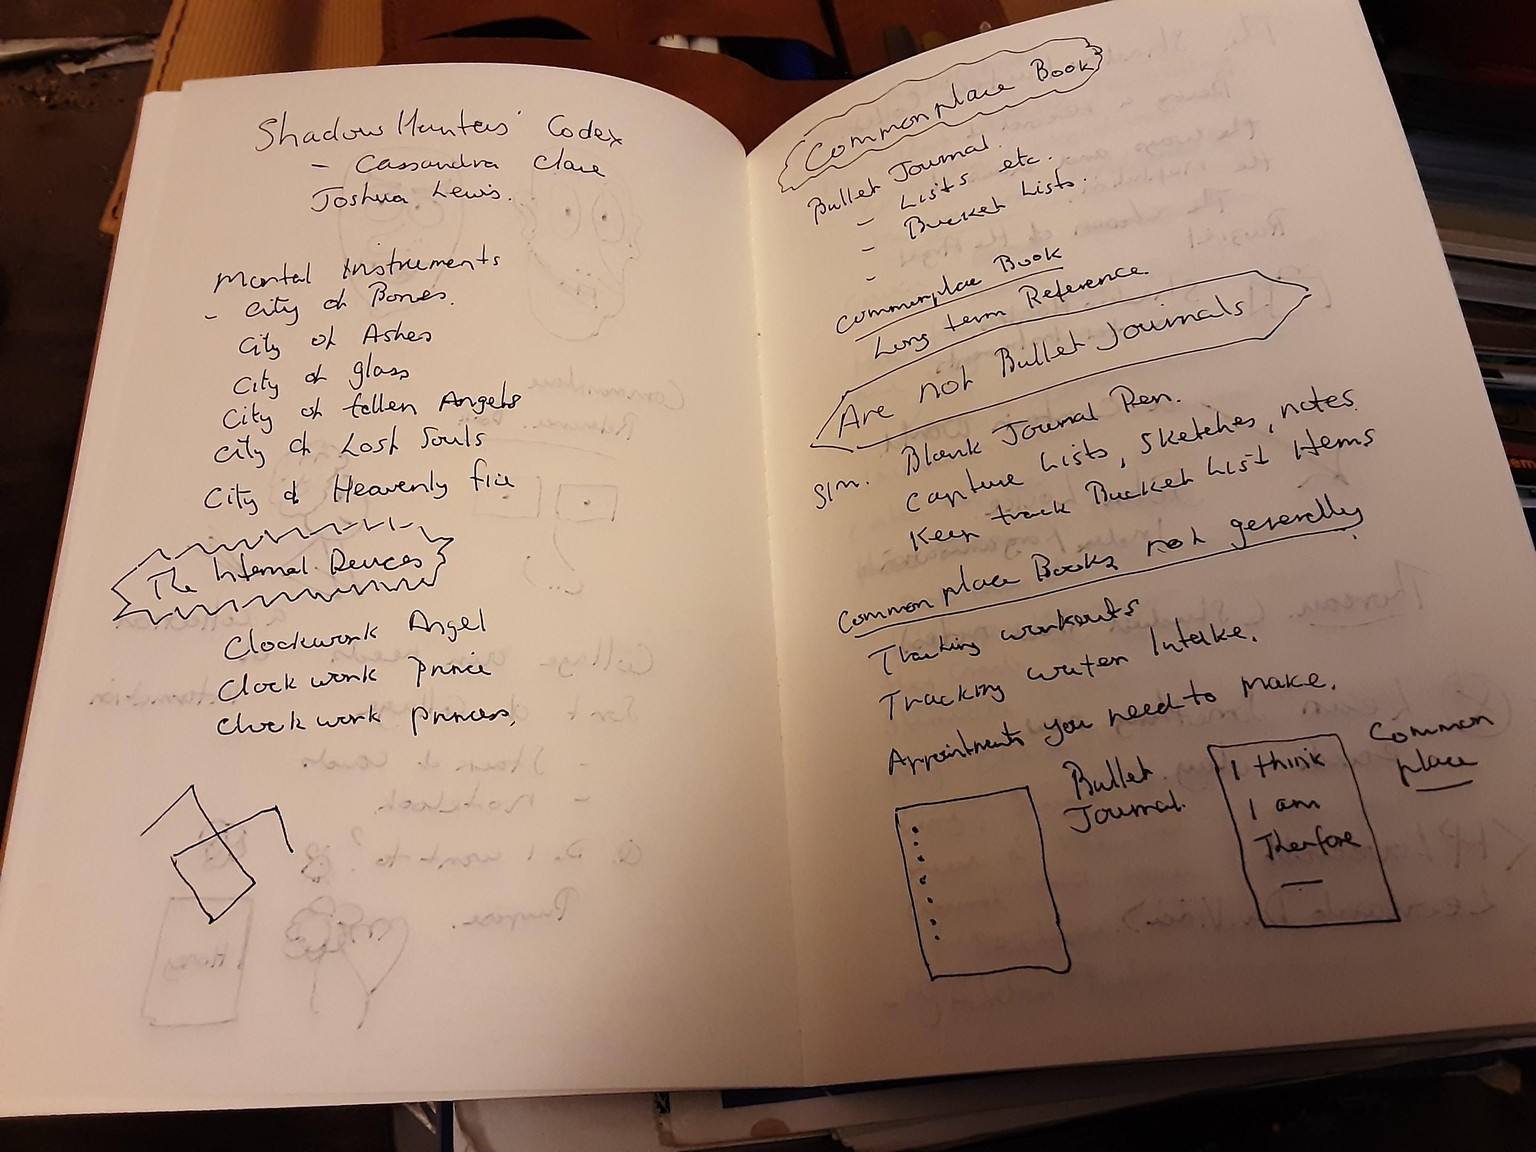 Shadow Hunters' Codex
- Cassandra Clare
Joshua Lewis.
Mortal Instruments
- City of Bones.
City of Ashes
City of glass
City of fallen Angels
City of Lost Souls
City of Heavenly fire
The Infernal Devices
Clockwork Angel
Clockwork Prince
Clockwork princess.
Commonplace Book
Bullet Journal.
- Lists etc.
- Bucket Lists.
-
Commonplace Book
Long term Reference
Are not Bullet Journals
Sim. Blank Journal Pen.
Capture Lists, Sketches, notes
Keep track Bucket List Items
Commonplace Books not generally
Tracking workouts
Tracking water Intake.
Appointments you need to make.
Bullet
Journal.
I think
I am
Therfore
Common
place